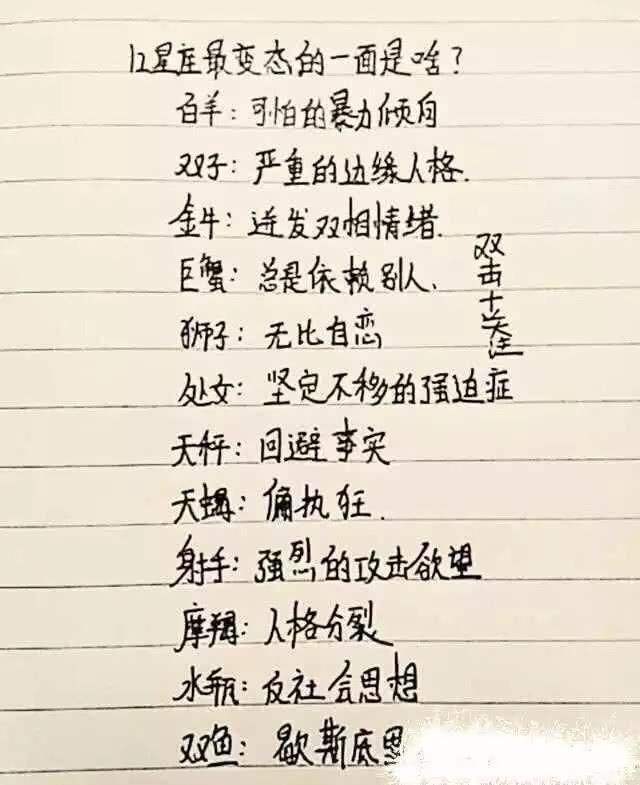 12星座最变态的一面是啥？
白羊：可怕的暴力倾向
双子：严重的边缘人格.
金牛：迸发双相情绪.
巨蟹：总是依赖别人.
狮子：无比自恋
处女：坚定不移的强迫症
天秤：回避事实
天蝎：偏执狂.
射手：强烈的攻击欲望
摩羯：人格分裂
水瓶：反社会思想
双鱼：歇斯底思
双击+关注